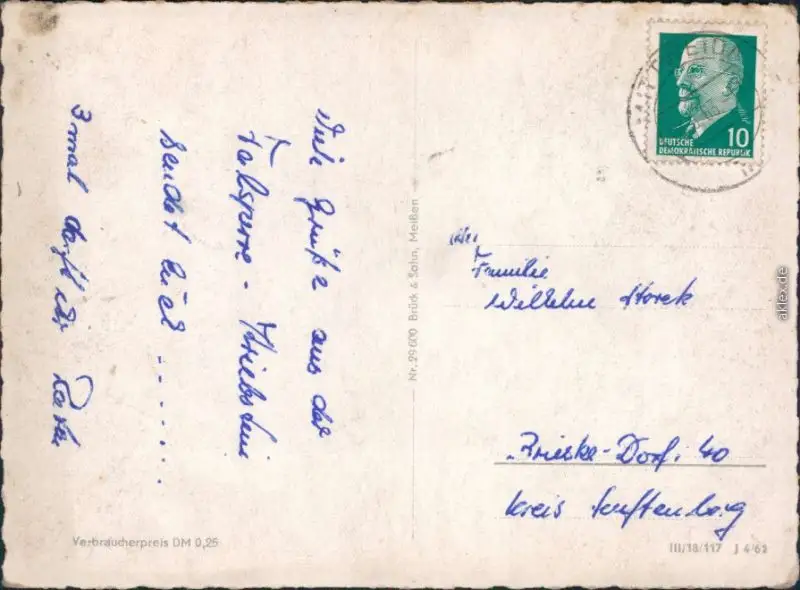 Viele Grüße aus der
Talsperre - Kriebstein
sendet euch .......
3 mal dürft ihr raten
Verbraucherpreis DM 0,25
Nr. 29600 Brück & Sohn, Meißen
DEUTSCHE
DEMOKRATISCHE REPUBLIK
10
An
Familie
Wilhelm Storck
Brieske-Dorf. 40
Kreis Senftenberg
III/18/117 J 4/62
aklex.de